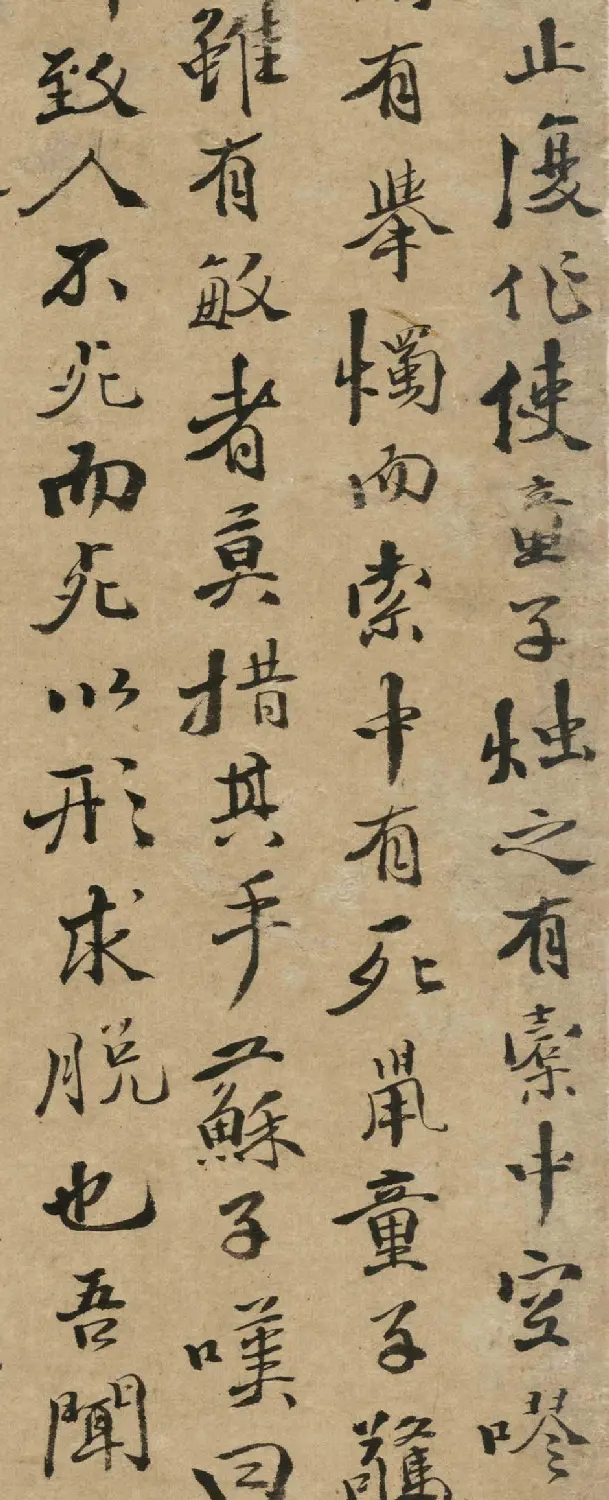 止復作使童子烛之有橐中空嘐
有舉燭而索中有死鼠童子驚
雖有敏者莫措其手蘇子嘆曰
致人不死而死以形求脫也吾聞